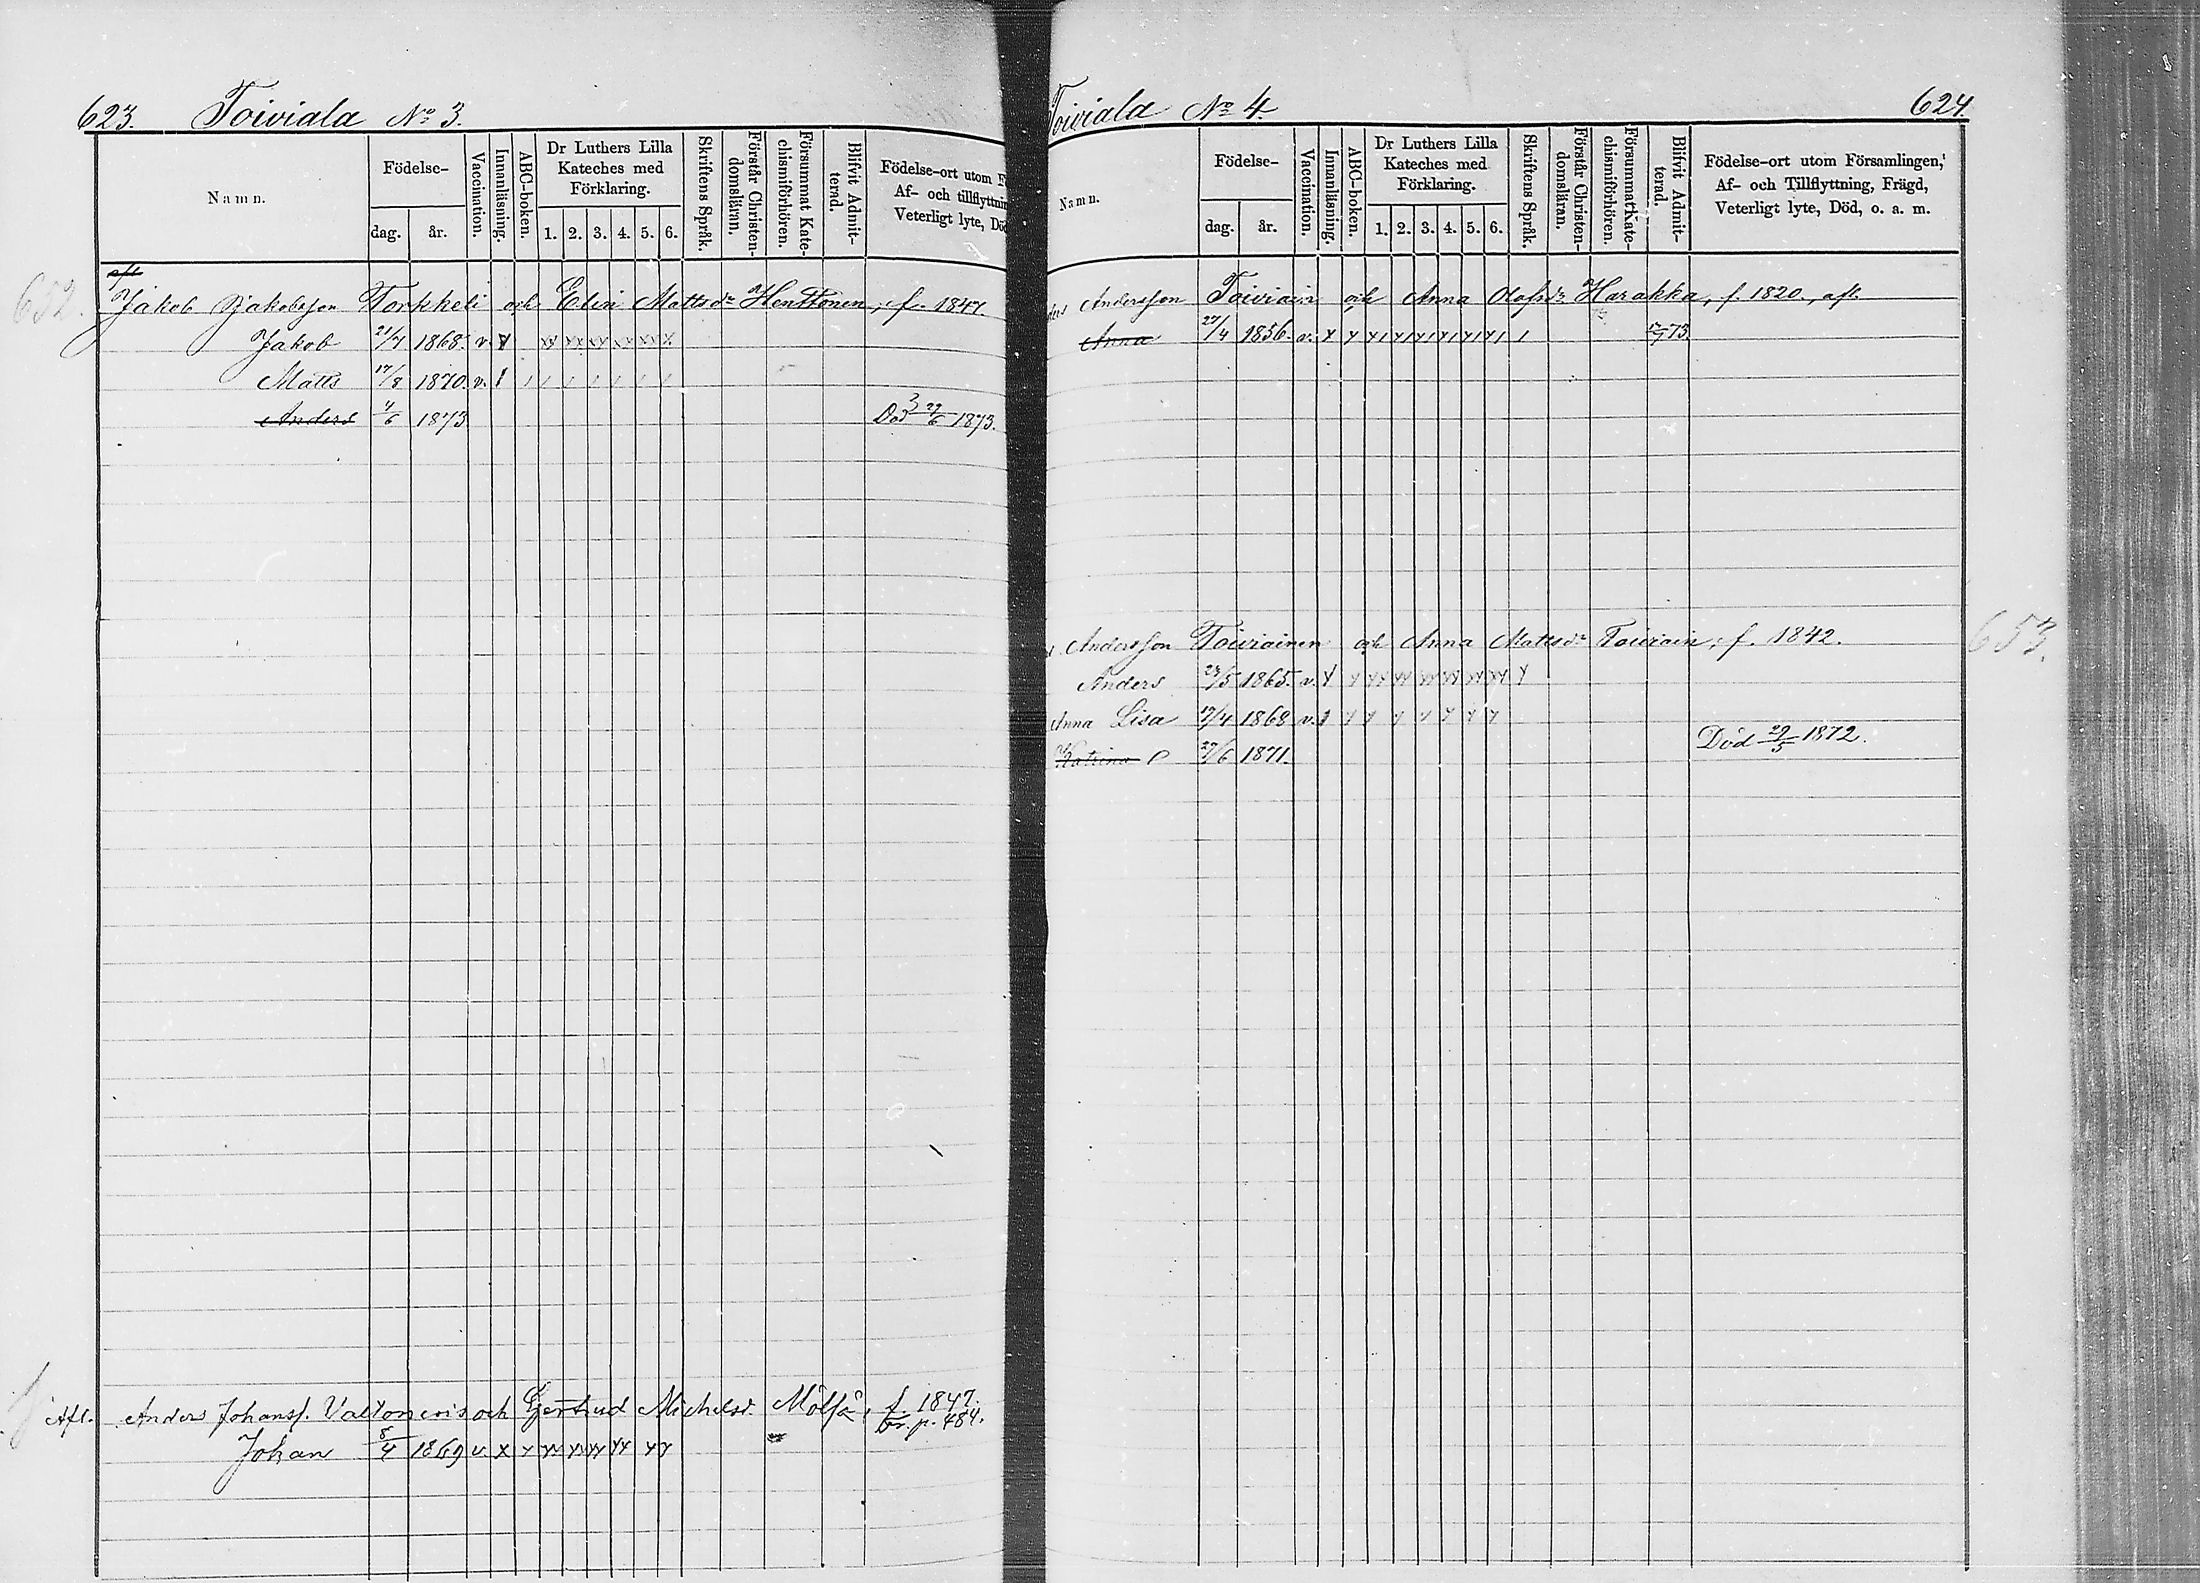 623. Toiviala No 3.
Namn.
Födelse-
dag. år.
Vaccination.
Innanläsning.
ABC-boken.
Dr Luthers Lilla
Kateches med
Förklaring.
1. 2. 3. 4. 5. 6.
Skriftens Språk.
Förstår Christen-
domsläran.
Försummat Kate-
chismiförhören.
Blifvit Admit-
terad.
Födelse-ort utom
Af- och tillflyttnin
Veterligt lyte, Dö
652.
Jakob Jakobsson Torkkeli och Elin Mattsdr Henttonen, f. 1847.
Jakob 21/4 1868. v. x xx xx xx xx xx x
Matts 17/8 1870. v. 1 1 1 1 1 1 1 1
Anders 4/6 1873 Död 29/6 1873.
Afl. Anders Johanss. Valtonen och Gertrud Michelsd. Mölsä, f. 1847.
br. p. 484.
Johan 8/4 1869 v. x
Toiviala No 4. 624.
Namn.
Födelse-
dag. år.
Vaccination.
Innanläsning.
ABC-boken.
Dr Luthers Lilla
Kateches med
Förklaring.
1. 2. 3. 4. 5. 6.
Skriftens Språk.
Förstår Christen-
domsläran.
Försummat Kate-
chismiförhören.
Blifvit Admit-
terad.
Födelse-ort utom Församlingen,
Af- och Tillflyttning, Frägd,
Veterligt lyte, Död, o. a. m.
Andersson Toiviain och Anna Olofsdr Harakka, f. 1820., afl.
Anna 27/4 1856. v. 73.
653.
Andersson Toiviainen och Anna Mattsdr Toiviain, f. 1842.
Anders 23/5 1865. v.
Anna Lisa 17/4 1868 v.
Katrina 27/6 1871. Död 29/5 1872.